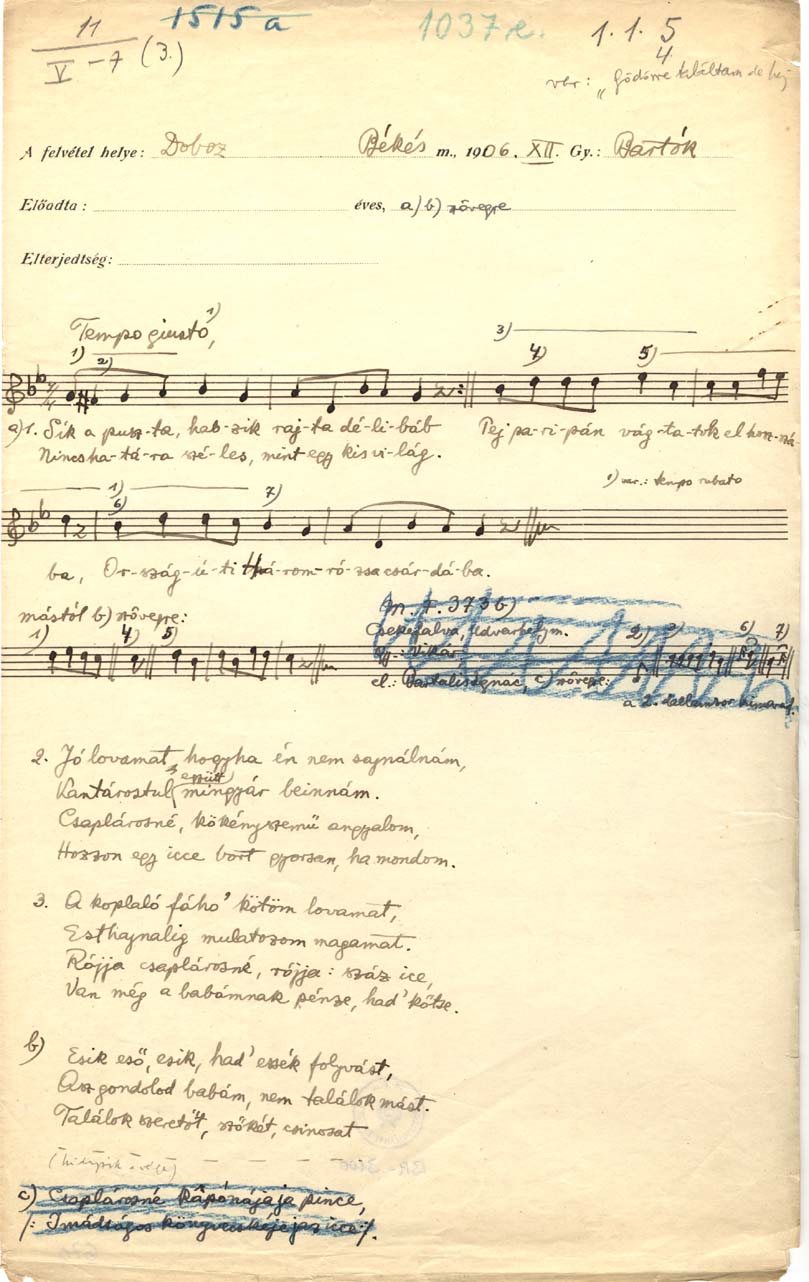 11
V - 7 (3.)
1515 a
1037e.
1. 1. 5
4
var: "Gödörre találtam de hej
A felvétel helye: Doboz Békés m., 1906. XII. Gy.: Bartók
Előadta: éves, a) b) szövegre
Elterjedtség:
Tempo giusto, 1)
1) 2) 3) 4) 5)
a) 1. Sík a pusz-ta, hab-zik raj-ta dé-li-báb Pej pa-ri-pán vág-ta-tok el hozzá-
Nincs ha-tá-ra szé-les, mint egy kis vi-lág.
1) var.: tempo rubato
1) 6) 7)
ba, Or-szág-ú-ti Há-rom-ró-zsa csár-dá-ba.
mástól b) szövegre:
M. F. 373 b)
Csekefalva, Udvarhely m.
Gy.: Vikár
el.: Bartalis Ignác, c) szövegre:
1) 4) 5) 2) 3) 6) 7)
a 2. dallamsor kimarad.
2. Jó lovamat, hogyha én nem sajnálnám,
együtt
Kantárostul mingyár beinnám.
Csaplárosné, kökényszemű angyalom,
Hozzon egy icce bort gyorsan, ha mondom.
3. A koplaló fáho' kötöm lovamat,
Esthajnalig mulatozom magamat.
Rójja csaplárosné, rójja: száz ice,
Van még a babámnak pénze, had' kőtse.
b) Esik eső, esik, had' essék folyvást,
Asz gondolod babám, nem találok mást.
Találok szeretőt, szőkét, csinosat
(hiányzik a vége)
c) Csaplárosné kápónájaja pince,
/: Imádságos könyvecskéje jaz icce :/.